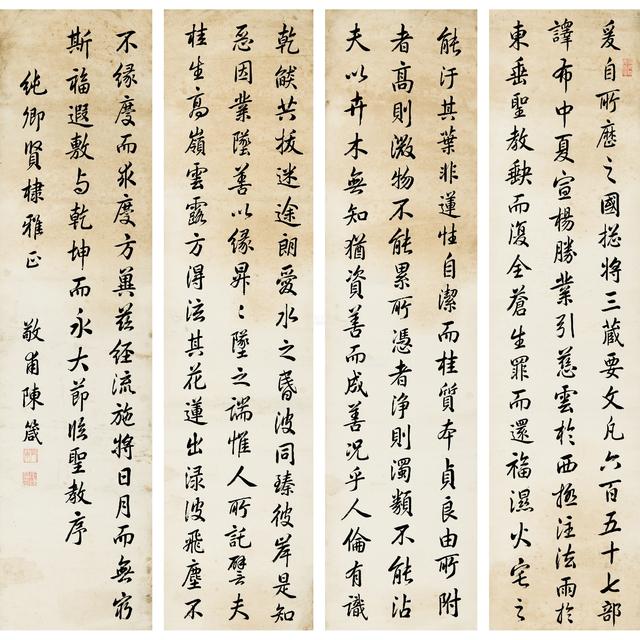 爰自所歷之國揔將三蔵要文凡六百五十七部
譯布中夏宣楊勝業引慈雲於西極注法雨於
東垂聖教缺而復全蒼生罪而還福濕火宅之
能汙其葉非蓮性自潔而桂質本貞良由所附
者高則微物不能累所憑者淨則濁類不能沾
夫以卉木無知猶資善而成善況乎人倫有識
乾燄共拔迷途朗愛水之昏波同臻彼岸是知
惡因業墜善以緣昇〻墜之端惟人所託譬夫
桂生高嶺雲露方得泫其花蓮出淥波飛塵不
不緣慶而求慶方冀茲经流施將日月而無窮
斯福遐敷与乾坤而永大節臨聖教序
純卿賢棣雅正 敬甫陳箴